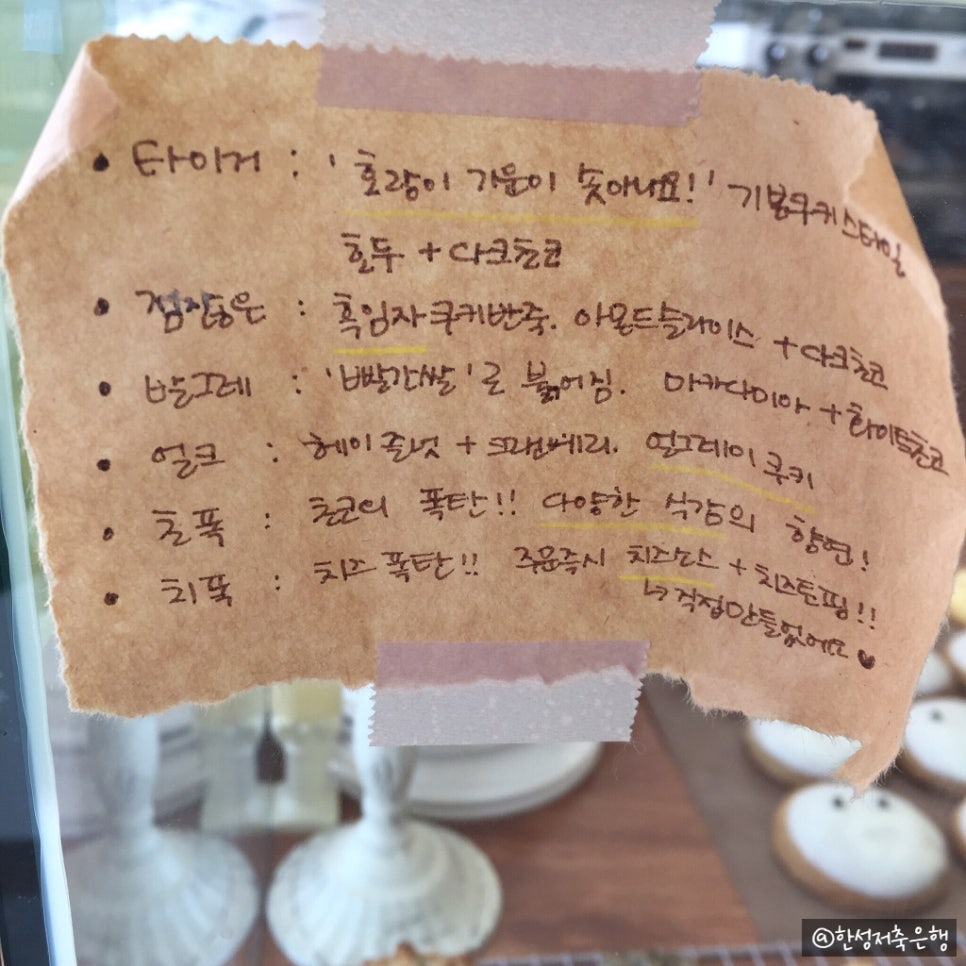 • 타이거 : '호랑이 기운이 솟아나요!' 기본쿠키스타일
호두 + 다크초코
• 점잖은 : 흑임자쿠키반죽. 아몬드슬라이스 + 다크초코
• 빠르크레 : '빨간쌀'로 붉어짐. 마카다미아 + 화이트초코
• 얼크 : 헤이즐넛 + 크랜베리. 얼그레이쿠키
• 초폭 : 초코의 폭탄!! 다양한 식감의 향연!
• 치폭 : 치즈폭탄!! 주문즉시 치즈소스 + 치즈토핑!!
↳직접만들었어요 ♥
@한성저축은행